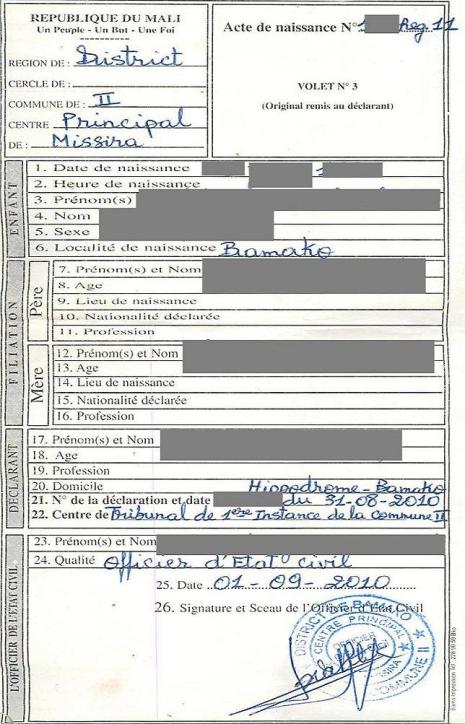 REPUBLIQUE DU MALI
Un Peuple - Un But - Une Foi
REGION DE : District
CERCLE DE :
COMMUNE DE : II
CENTRE Principal
DE : Missira
Acte de naissance N° Reg 11
VOLET N° 3
(Original remis au déclarant)
ENFANT
1. Date de naissance
2. Heure de naissance
3. Prénom(s)
4. Nom
5. Sexe
6. Localité de naissance Bamako
FILIATION
Père
7. Prénom(s) et Nom
8. Age
9. Lieu de naissance
10. Nationalité déclarée
11. Profession
Mère
12. Prénom(s) et Nom
13. Age
14. Lieu de naissance
15. Nationalité déclarée
16. Profession
DECLARANT
17. Prénom(s) et Nom
18. Age
19. Profession
20. Domicile Hippodrome - Bamako
21. N° de la déclaration et date du 31-08-2010
22. Centre de Tribunal de 1ère Instance de la Commune II
L'OFFICIER DE L'ETAT CIVIL
23. Prénom(s) et Nom
24. Qualité Officier d'Etat civil
25. Date 01-09-2010
26. Signature et Sceau de l'Officier d'Etat Civil
DISTRICT DE BAMAKO
CENTRE PRINCIPAL
OFFICIER
COMMUNE II